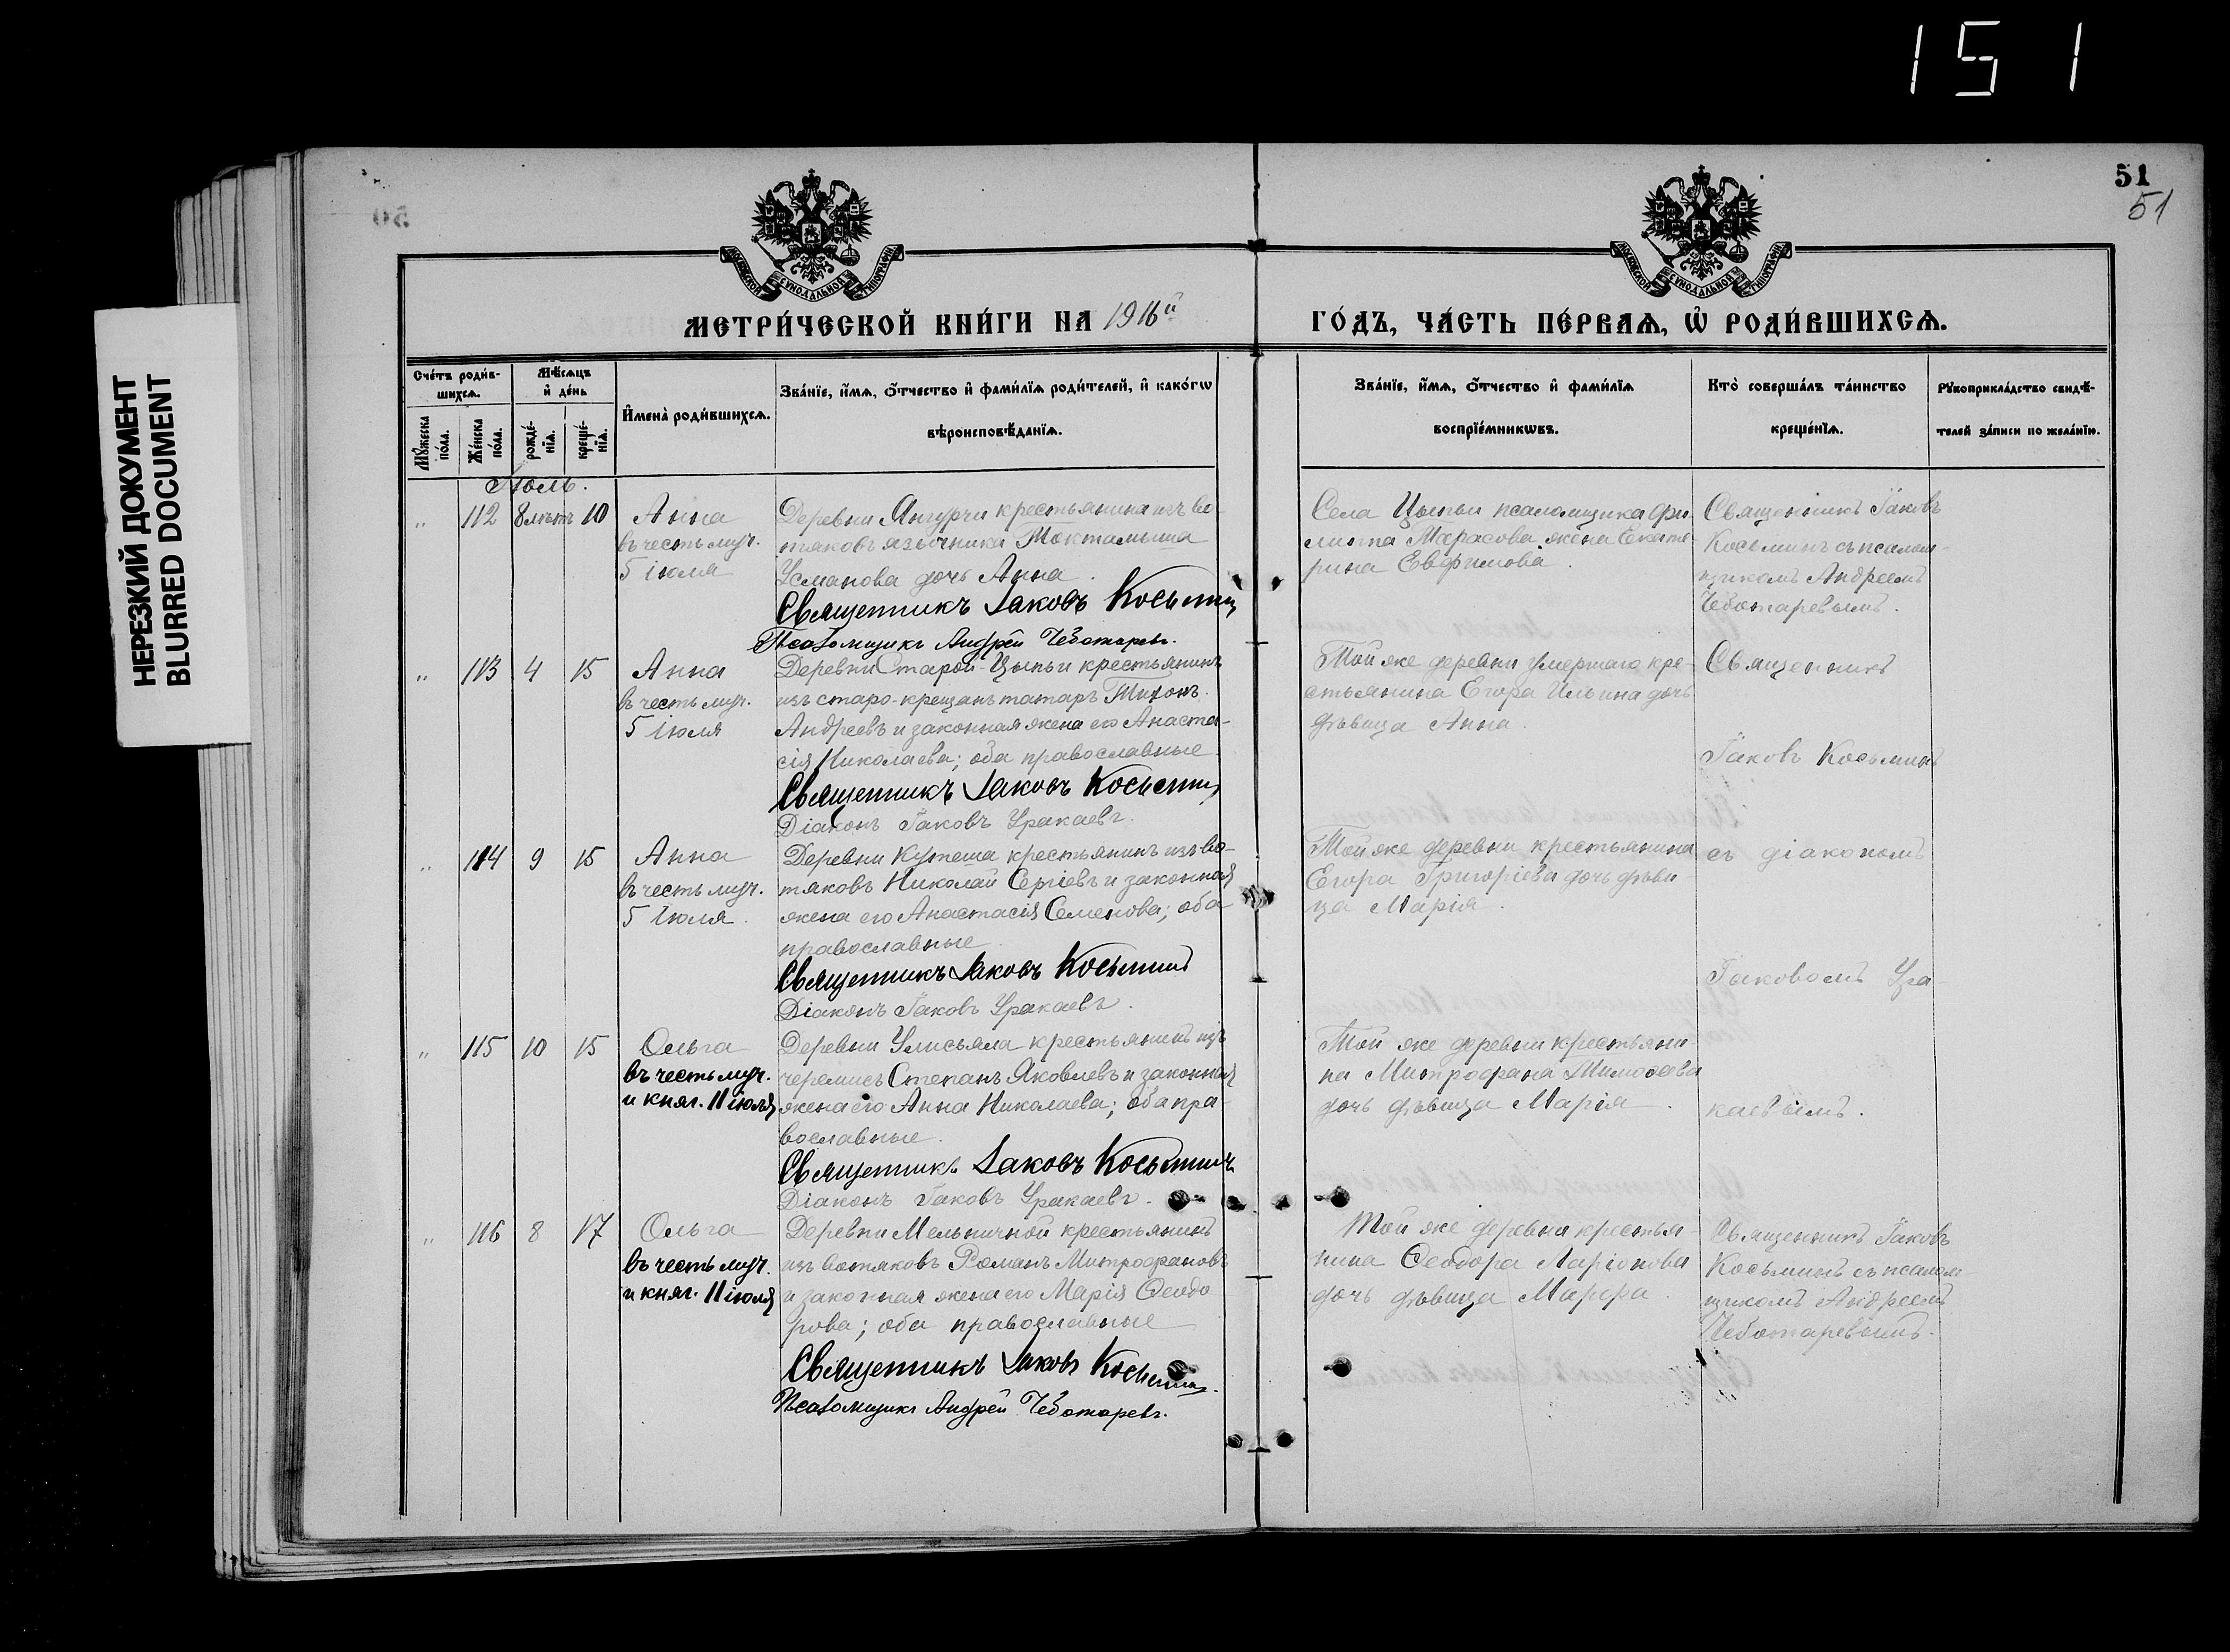 151
НЕРЕЗКИЙ ДОКУМЕНТ
BLURRED DOCUMENT
51
51
МОСКОВСКОЙ СѴНОДАЛЬНОЙ ТИПОГРАФІИ
МОСКОВСКОЙ СѴНОДАЛЬНОЙ ТИПОГРАФІИ
МЕТРИ́ЧЕСКОЙ КНИ́ГИ НА 1916й
ГО́ДЪ, ЧА́СТЬ ПЕ́РВАѦ, Ѡ҆ РОДИ́ВШИХСѦ.
Сче́тъ роди́в-
шихсѧ.
Мꙋ́жеска по́ла.
Же́нска по́ла.
Мѣ́сѧцъ
и҆ де́нь
рожде́-
нїѧ.
креще́-
нїѧ.
И҆мена̀ роди́вшихсѧ.
Зва́нїе, и҆́мѧ, ѻ҆́тчество и҆ фами́лїѧ роди́телей, и҆ како́гѡ
вѣроисповѣ́данїѧ.
Зва́нїе, и҆́мѧ, ѻ҆́тчество и҆ фами́лїѧ
воспрїе́мникѡвъ.
Кто̀ соверша́лъ та́инство
креще́нїѧ.
Рꙋкоприкла́дство свидѣ́-
телей за́писи по жела́нїю.
Іюль.
" 112 8 лѣтъ 10 Анна
въ честь муч.
5 іюля
Деревни Янгурчи крестьянина изъ во-
тяковъ язычника Токтамыша
Усманова дочь Анна.
Священникъ Іаковъ Косьминъ
Псаломщикъ Андрей Чеботаревъ.
Села Цыпьи псаломщика Фи-
липпа Марасова жена Екате-
рина Евфимова.
Священникъ Іаковъ
Косьминъ съ псалом-
щикомъ Андреемъ
Чеботаревымъ.
" 113 4 15 Анна
въ честь муч.
5 іюля
Деревни Старой-Цыпьи крестьянинъ
изъ старо-крещенъ татаръ Тихонъ
Андреевъ и законная жена его Анаста-
сія Николаева; оба православные.
Священникъ Іаковъ Косьминъ
Діаконъ Іаковъ Уракаевъ.
Той же деревни умершаго кре-
стьянина Егора Ильина дочь
дѣвица Анна.
Священникъ
Іаковъ Косьминъ
" 114 9 15 Анна
въ честь муч.
5 іюля.
Деревни Кутеша крестьянинъ изъ во-
тяковъ Николай Сергіевъ и законная
жена его Анастасія Семенова; оба
православные.
Священникъ Іаковъ Косьминъ
Діаконъ Іаковъ Уракаевъ.
Той же деревни крестьянина
Егора Григоріева дочь дѣви-
ца Марія.
съ діакономъ
Іаковомъ Ура-
" 115 10 15 Ольга
въ честь муч.
и княг. 11 іюля
Деревни Улисьяла крестьянинъ изъ
черемисъ Степанъ Яковлевъ и законная
жена его Анна Николаева; оба пра-
вославные.
Священникъ Іаковъ Косьминъ
Діаконъ Іаковъ Уракаевъ.
Той же деревни крестьяни-
на Митрофана Тимофеева
дочь дѣвица Марія.
каевымъ.
" 116 8 17 Ольга
въ честь муч.
и княг. 11 іюля
Деревни Мельничной крестьянинъ
изъ вотяковъ Романъ Митрофановъ
и законная жена его Марія Ѳеодо-
рова; оба православные
Священникъ Іаковъ Косьминъ.
Псаломщикъ Андрей Чеботаревъ.
Той же деревни крестья-
нина Ѳеодора Ларіонова
дочь дѣвица Марфа.
Священникъ Іаковъ
Косьминъ съ псалом-
щикомъ Андреемъ
Чеботаревымъ.